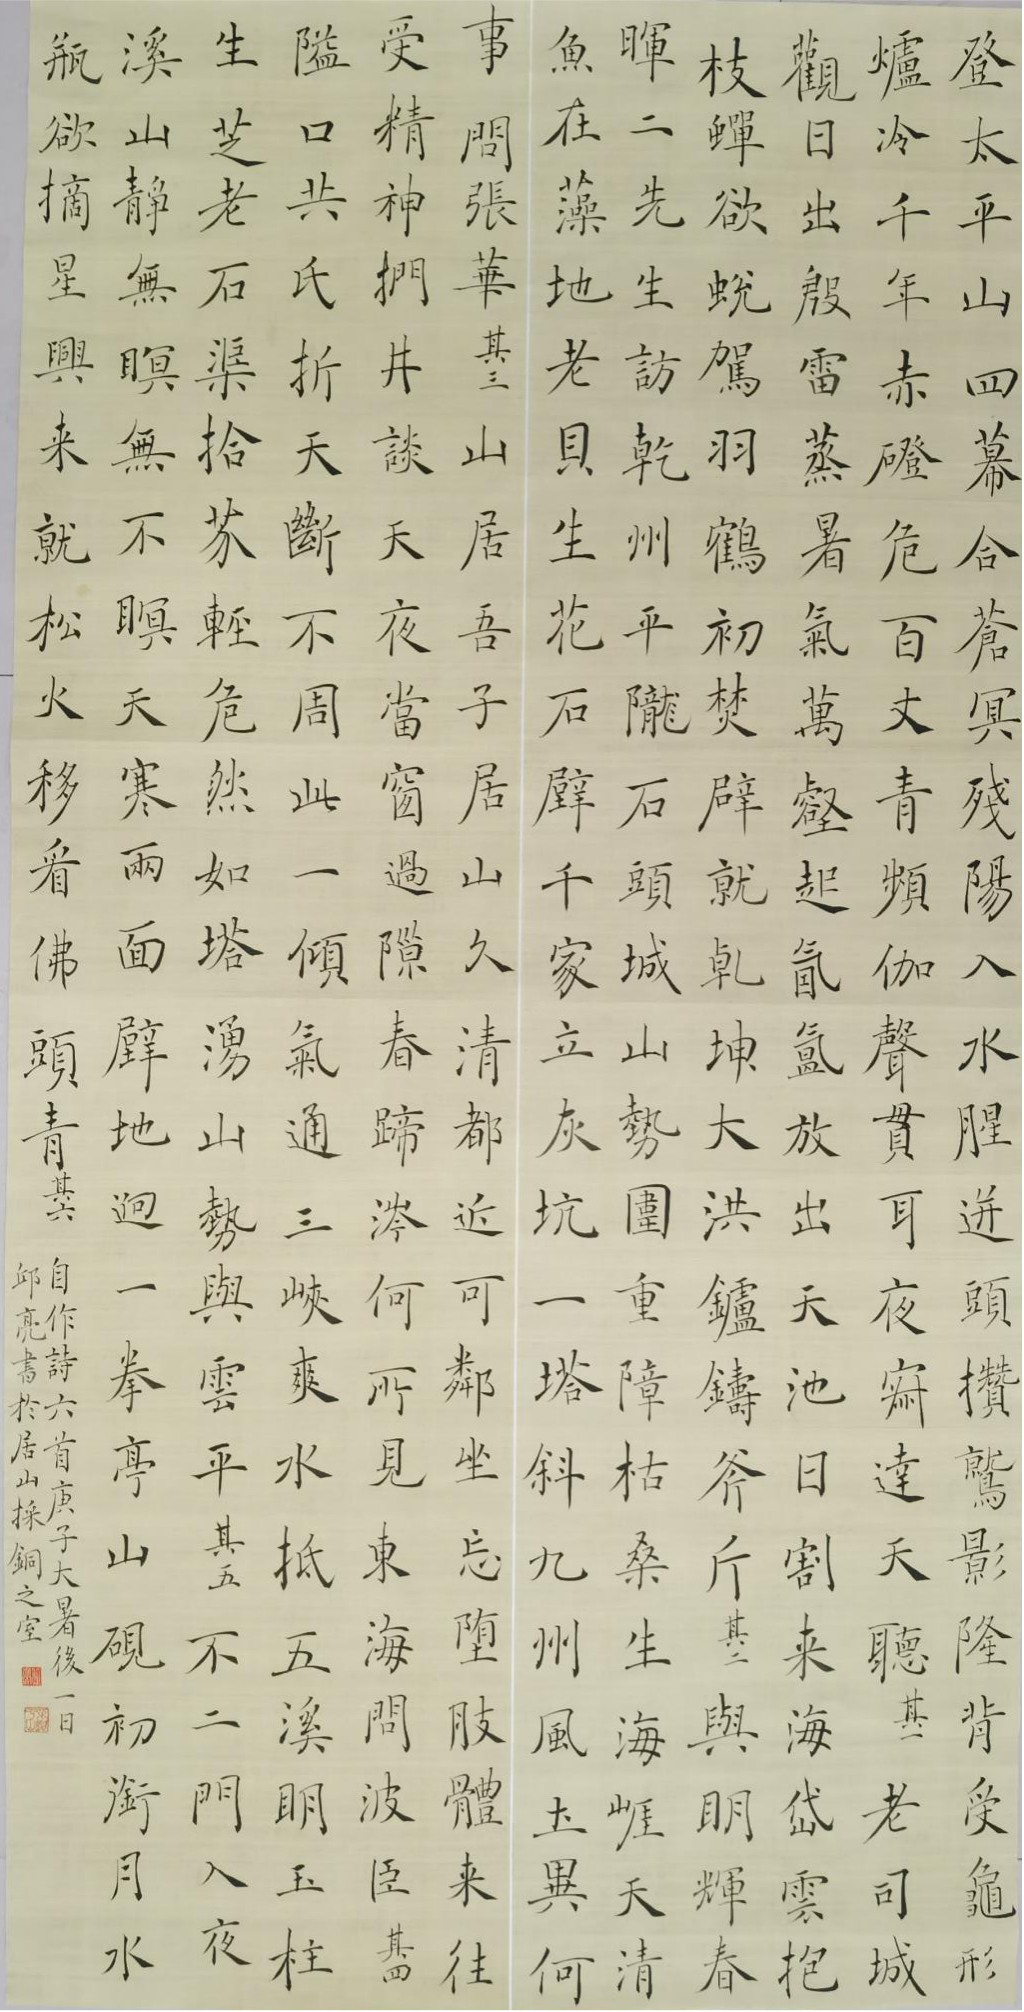 登太平山四幕合蒼冥殘陽入水腥迸頭攢鷲影隆背受龜形
爐冷千年赤磴危百丈青頻伽聲貫耳夜寂達天聽其一老司城
觀日出殷雷蒸暑氣萬壑起氤氳放出天池日割来海岱雲抱
枝蟬欲蛻駕羽鶴初焚辟就乹坤大洪鑪鑄斧斤其二與明輝春
暉二先生訪乾州平隴石頭城山勢圍重障枯桑生海崕天清
魚在藻地老貝生花石壁千家立灰坑一塔斜九州風土異何
事問張華其三山居吾子居山久清都近可鄰坐忘堕肢體来往
受精神捫井談天夜當窗過隙春蹄涔何所見東海問波臣其四
隘口共氏折天斷不周此一傾氣通三峽爽水抵五溪明玉柱
生芝老石渠拾芥輕危然如塔湧山勢與雲平其五不二門入夜
溪山靜無瞑無不瞑天寒兩面壁地迥一拳亭山硯初銜月水
瓶欲摘星興来就松火移看佛頭青其六
自作詩六首庚子大暑後一日
邱亮書於居山採銅之室